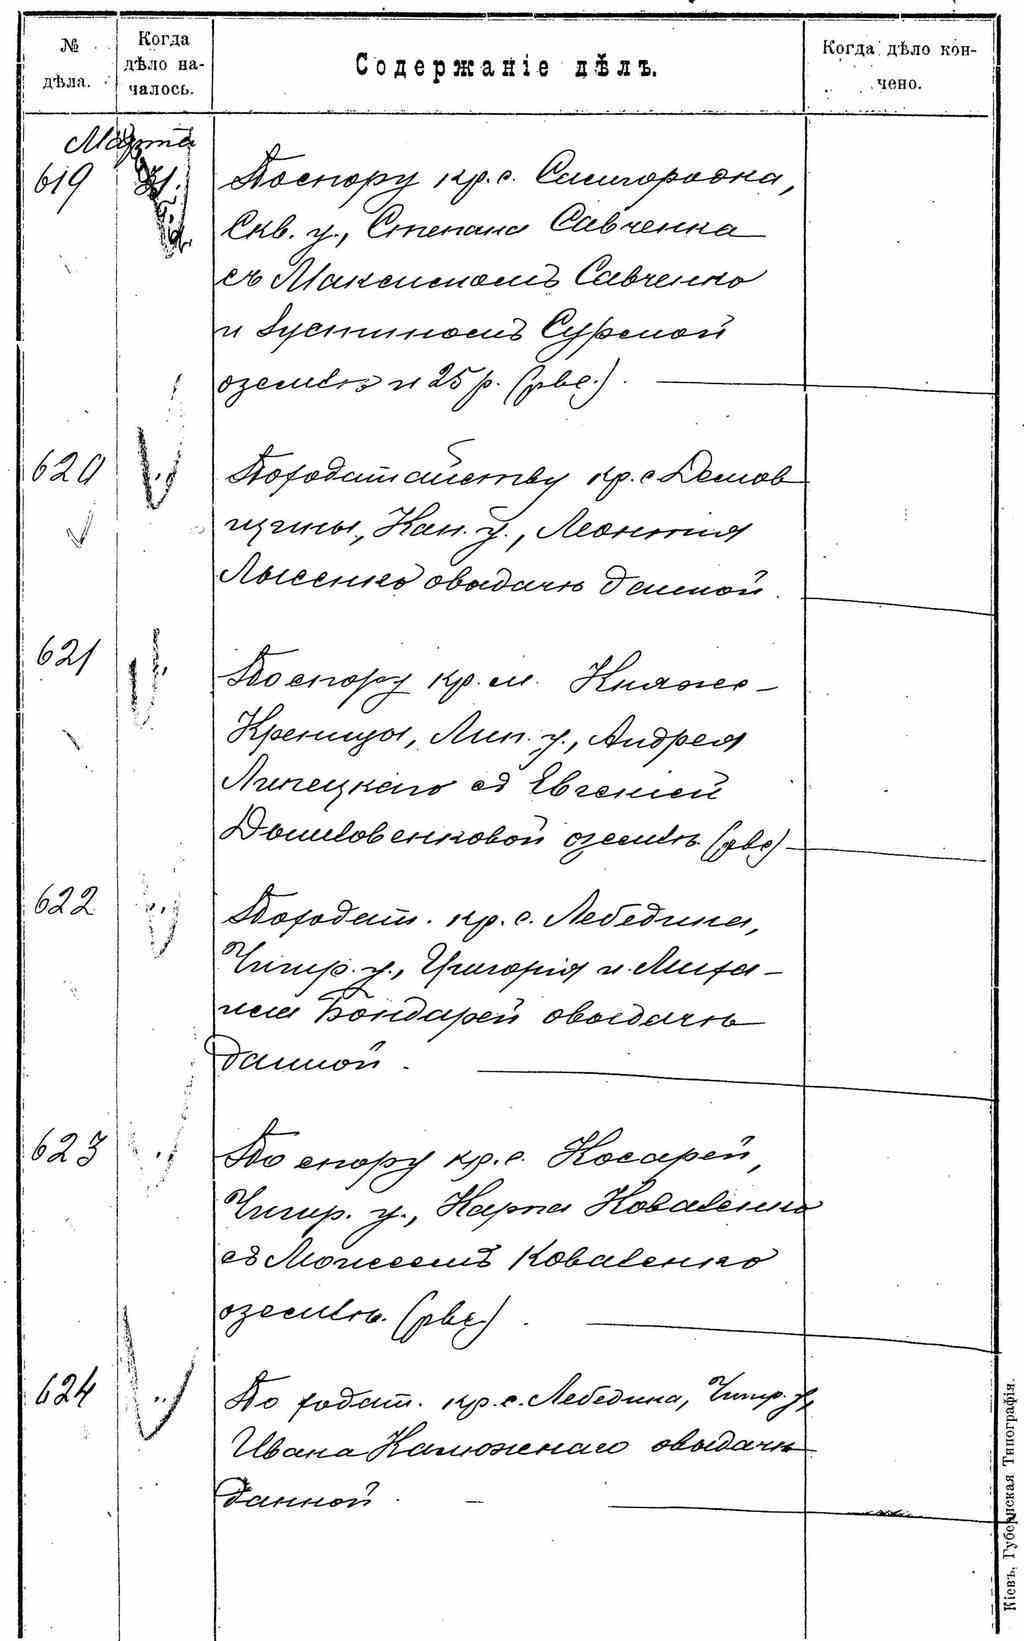 № дѣла.
Когда дѣло началось.
Содержаніе дѣлъ.
Когда дѣло кончено.
Марта
619
31.
По спору кр. с. Самгородка,
Скв. у., Степана Савченка
съ Максимомъ Савченко
и Іустиномъ Сурмой
о землѣ и 25 р. (рвс.).
620
"
По ходатайству кр. с Демов
щины, Кан. у., Леонтия
Лысенко о выдачѣ данной.
621
"
По спору кр. м. Княже-
Креницы, Лип. у., Андрея
Липецкаго съ Евгеніей
о землѣ (рвс)
622
"
По ходат. кр. с. Лебедина,
Чигир. у., Григорія и Миха-
ила Бондарей о выдачѣ
данной.
623
"
По спору кр. с. Косарей,
Чигир. у., Карпа Коваленко
съ Моисеемъ Коваленко
о землѣ. (рвс.).
624
"
По ходат. кр. с. Лебедина, Чигир. у,
Ивана Калюжнаго о выдачѣ
данной.
Кіевъ, Губернская Типографія.